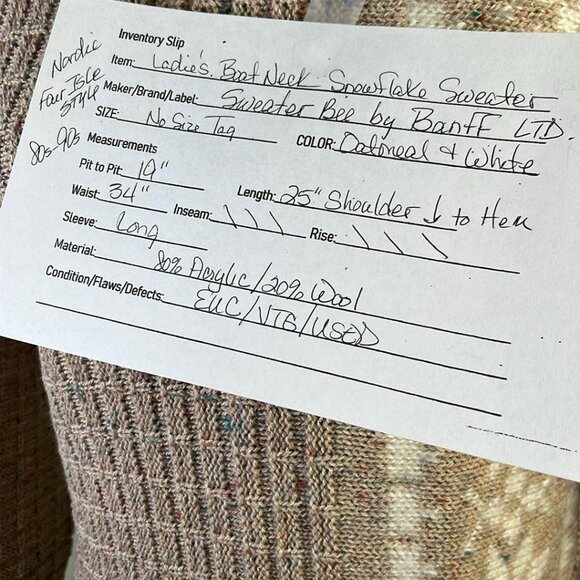 Inventory Slip
Nordic
Fair Isle
STYLE
80s-90s
Item: Ladie's Boat Neck Snowflake Sweater
Maker/Brand/Label: Sweater Bee by Banff LTD.
SIZE: No Size Tag COLOR: Oatmeal & White
Measurements
Pit to Pit: 19" Length: 25" Shoulder ↓ to Hem
Waist: 34" Inseam: \ \ \ Rise: \ \ \
Sleeve: Long
Material: 80% Acrylic/20% Wool
Condition/Flaws/Defects: EUC/VTG/USED